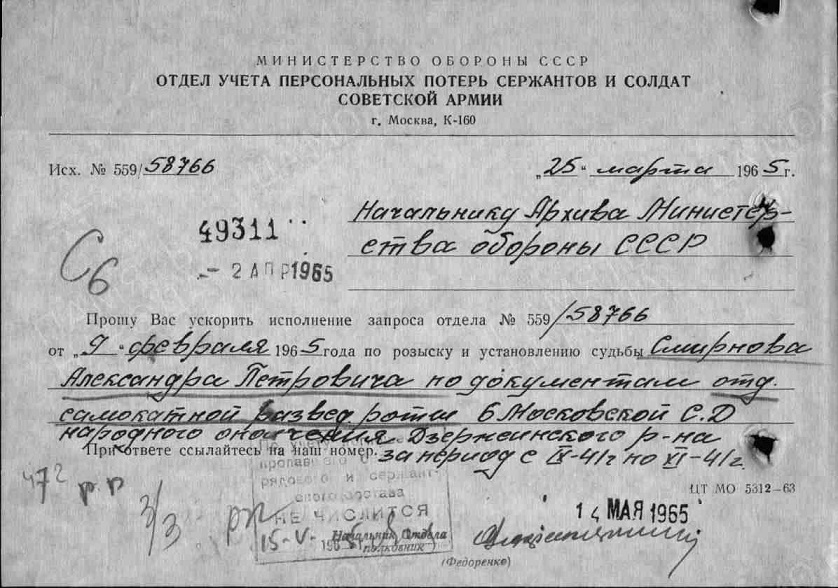 МИНИСТЕРСТВО ОБОРОНЫ СССР
ОТДЕЛ УЧЕТА ПЕРСОНАЛЬНЫХ ПОТЕРЬ СЕРЖАНТОВ И СОЛДАТ
СОВЕТСКОЙ АРМИИ
г. Москва, К-160
Исх. № 559/58766
„25“ марта 1965 г.
Начальнику Архива Министер-
ства обороны СССР
49311
- 2 АПР 1965
С6
Прошу Вас ускорить исполнение запроса отдела № 559/58766
от „9“ февраля 1965 года по розыску и установлению судьбы Смирнова
Александра Петровича по документам отд.
самокатной развед роты 6 Московской С.Д
народного ополчения Дзержинского р-на
При ответе ссылайтесь на наш номер. за период с IX-41г по XI-41г.
пропавшего
рядового и сержант-
ского состава
НЕ ЧИСЛИТСЯ
15-V- 1965
Начальник Отдела
полковник
472
р.р
3/3
ЦТ МО 5312-63
14 МАЯ 1965
(Федоренко)